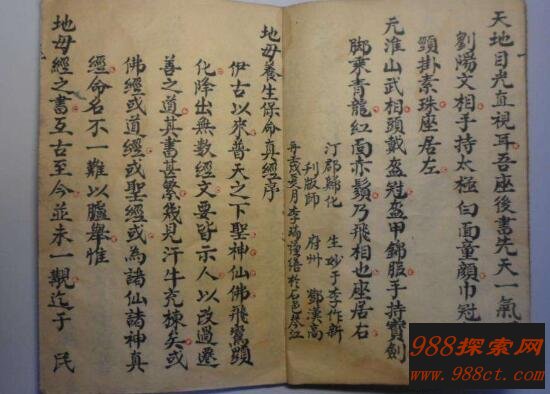 天地目光直視耳吾座後書先天一氣
劉陽文相手持太極白面童顏巾冠
頸掛素珠座居左
元淮山武相頭戴盔冠盔甲錦服手持寶劍
脚乘青龍紅面赤鬚乃飛相也座居右
汀郡歸化 生妙于李作新
刊版師 府州 鄧漢高
月李瑞謹繕於
地母養生保命真經序
伊古以來普天之下聖神仙佛飛鸞顯
化降出無數經文要皆示人以改過遷
善之道其書甚繁幾見汗牛充棟矣或
佛經或道經或聖經或為諸仙諸神真
經命名不一難以臚舉惟
地母經之書亙古至今並未一覩迄于 民
988探索网
www.988ct.com